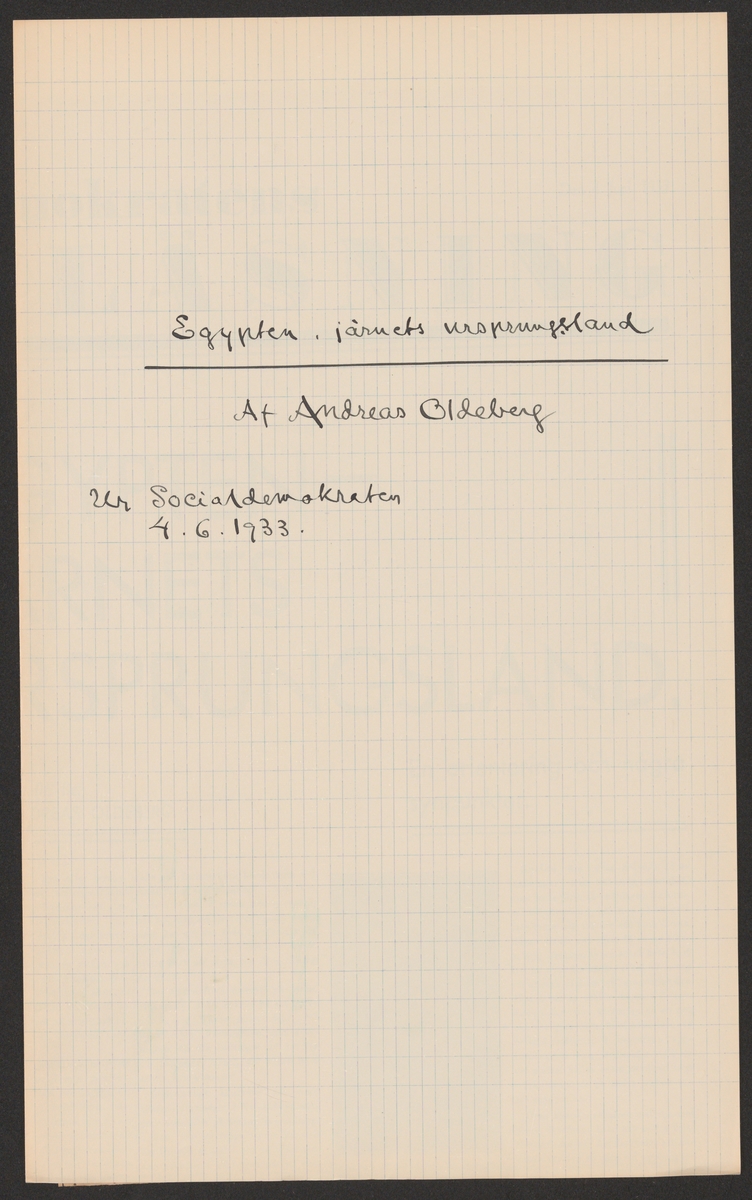 Egypten, järnets ursprungsland
Af Andreas Oldeberg
Ur Socialdemokraten
4.6.1933.